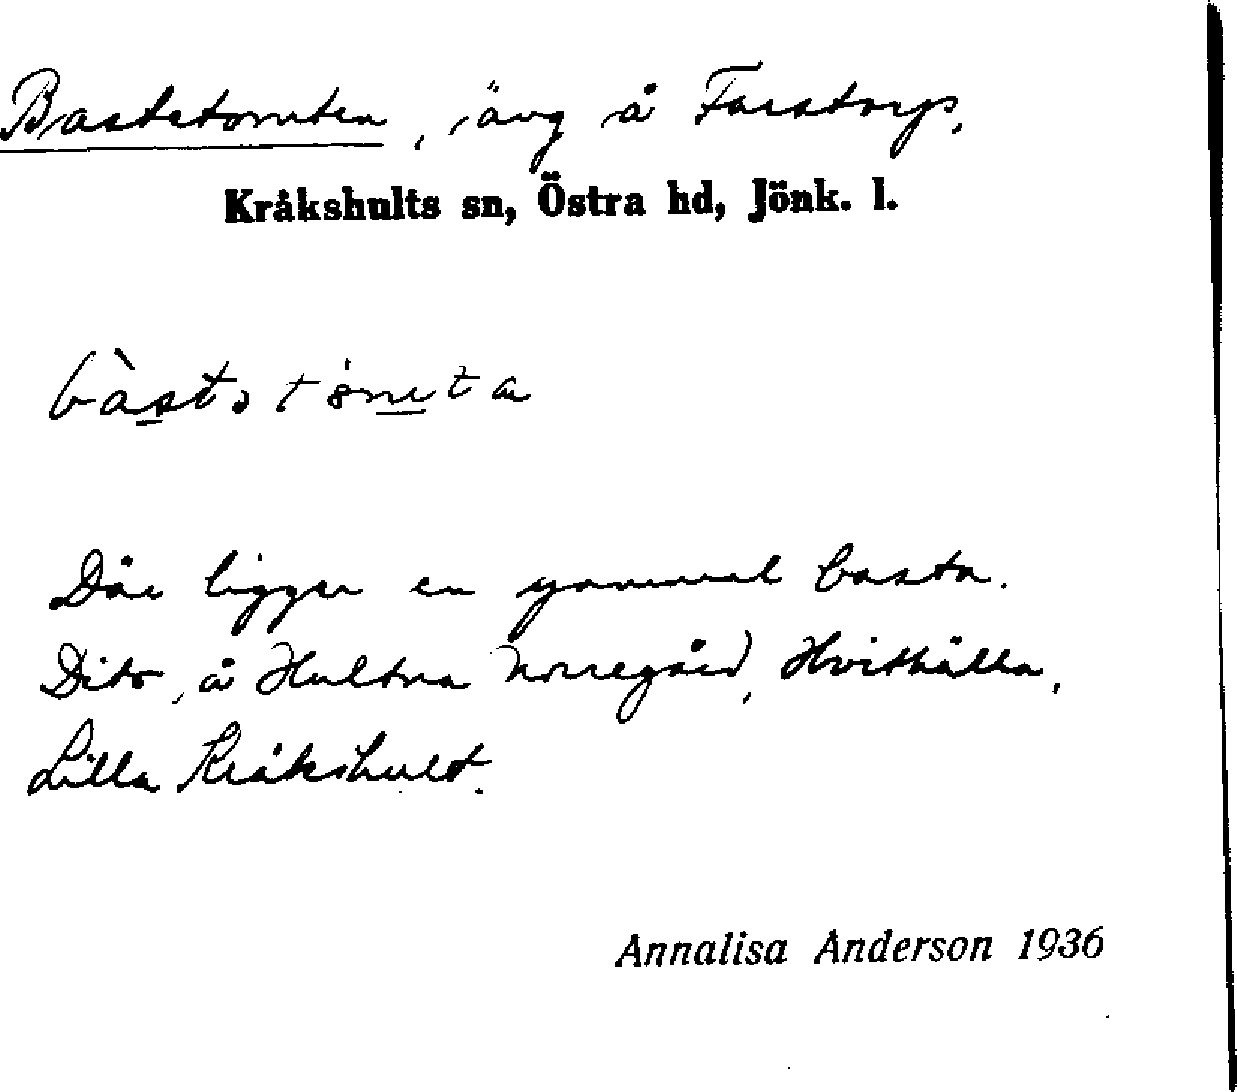 Bastetomten, äng å Farstorp,
Kråkshults sn, Östra hd, Jönk. l.
Där ligger en gammal basta.
Dito, å Hultna Norregård, Hvithälla,
Lilla Kråkshult.
Annalisa Anderson 1936